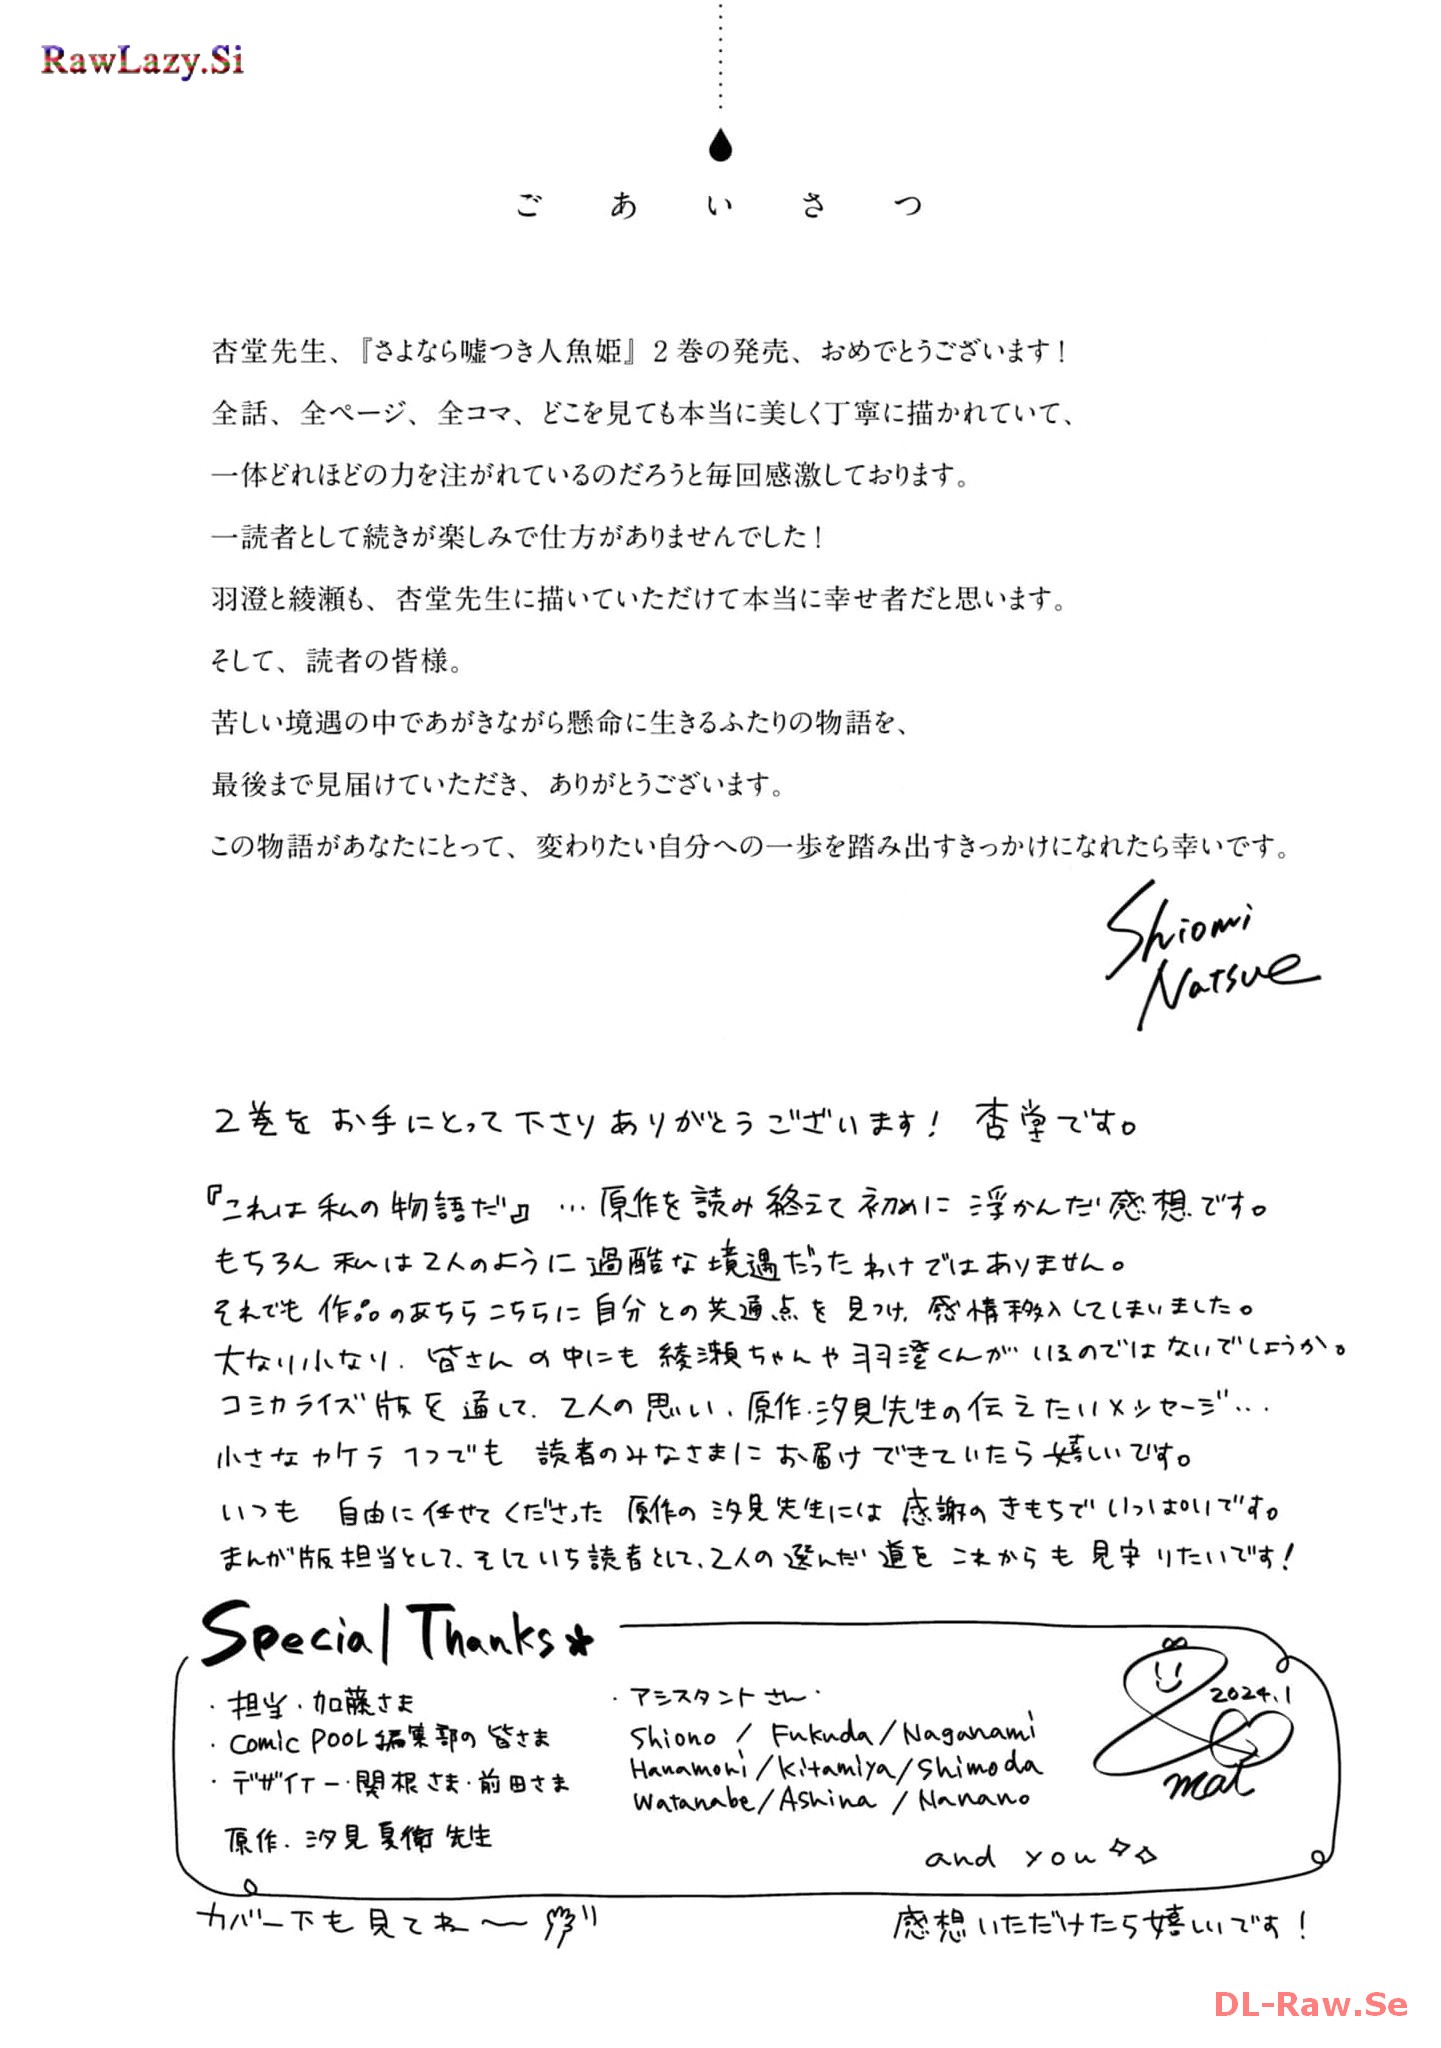 RawLazy.Si
ごあいさつ
杏堂先生、『さよなら嘘つき人魚姫』2巻の発売、おめでとうございます！
全話、全ページ、全コマ、どこを見ても本当に美しく丁寧に描かれていて、
一体どれほどの力を注がれているのだろうと毎回感激しております。
一読者として続きが楽しみで仕方がありませんでした！
羽澄と綾瀬も、杏堂先生に描いていただけて本当に幸せ者だと思います。
そして、読者の皆様。
苦しい境遇の中であがきながら懸命に生きるふたりの物語を、
最後まで見届けていただき、ありがとうございます。
この物語があなたにとって、変わりたい自分への一歩を踏み出すきっかけになれたら幸いです。
Shiomi
Natsue
2巻をお手にとって下さりありがとうございます！ 杏堂です。
『これは私の物語だ』…原作を読み終えて初めに浮かんだ感想です。
もちろん私は2人のように過酷な境遇だったわけではありません。
それでも作品のあちらこちらに自分との共通点を見つけ、感情移入してしまいました。
大なり小なり、皆さんの中にも綾瀬ちゃんや羽澄くんがいるのではないでしょうか。
コミカライズ版を通して、2人の思い、原作・汐見先生の伝えたいメッセージ…
小さなカケラ1つでも 読者のみなさまにお届けできていたら嬉しいです。
いつも 自由に任せてくださった 原作の汐見先生には感謝のきもちでいっぱいです。
まんが版担当として、そしていち読者として、2人の選んだ道をこれからも見守りたいです！
Special Thanks*
・担当・加藤さま
・comic POOL編集部の皆さま
・デザイナー・関根さま・前田さま
原作・汐見夏衛先生
・アシスタントさん・
Shiono / Fukuda / Naganami
Hanamori / Kitamiya / Shimoda
Watanabe / Ashina / Nanano
and you
2024.1
カバー下も見てね〜
感想いただけたら嬉しいです！
DL-Raw.Se